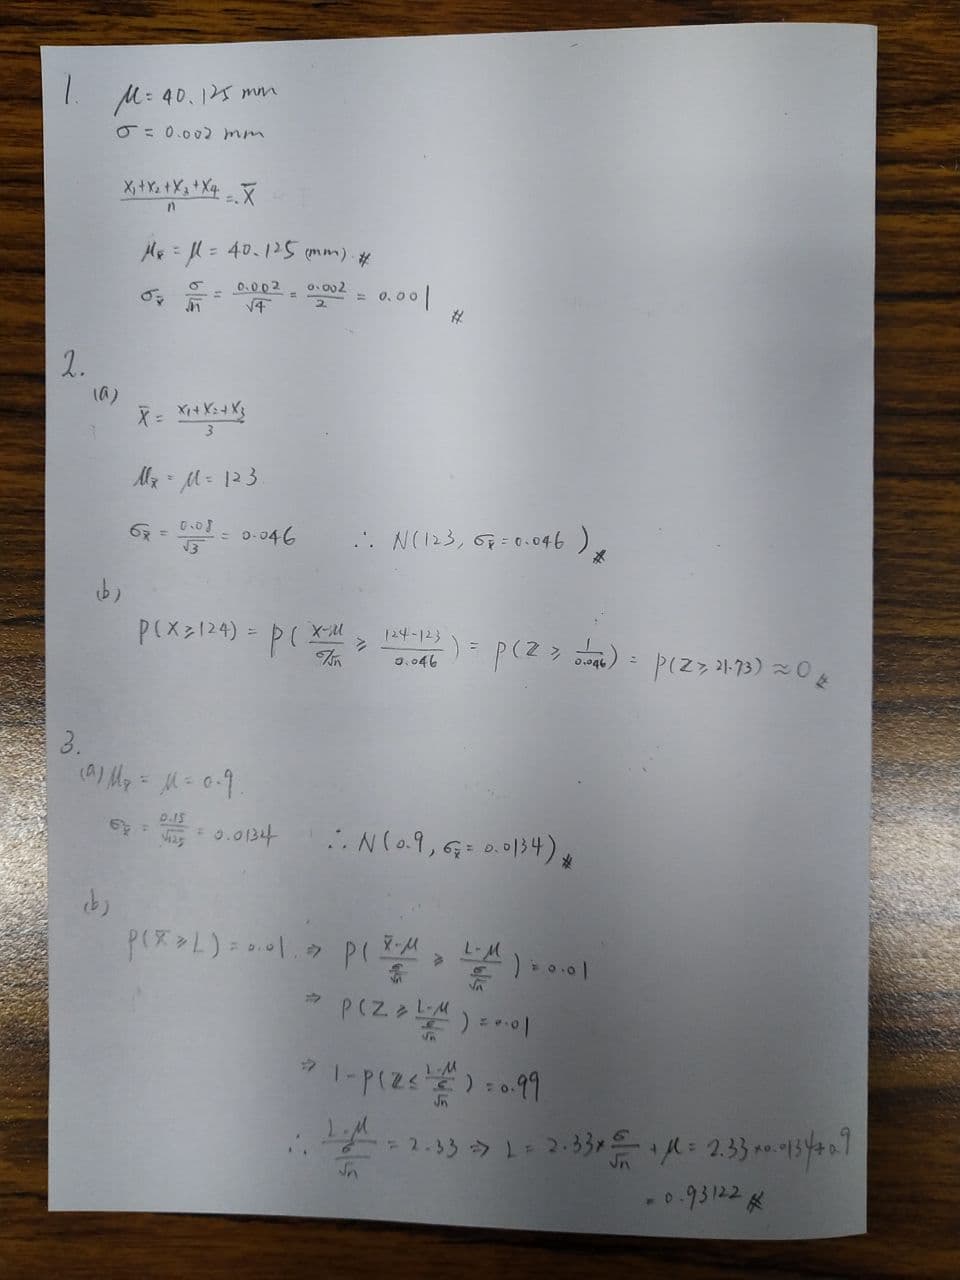 1. μ = 40.125 mm
σ = 0.002 mm
(x₁+x₂+x₃+x₄)/n = x̄
μx̄ = μ = 40.125 (mm). #
σx̄ σ/√n = 0.002/√4 = 0.002/2 = 0.001 #
2.
(a)
x̄ = (x₁+x₂+x₃)/3
μx̄ = μ = 123
σx̄ = 0.08/√3 = 0.046 ∴ N(123, σx̄ = 0.046) #
(b)
P(X ≥ 124) = P( (X-μ)/(σ/√n) ≥ (124-123)/0.046 ) = P(Z ≥ 1/0.046) = P(Z ≥ 21.73) ≈ 0 #
3.
(a) μx̄ = μ = 0.9
σx̄ = 0.15/√125 = 0.0134 ∴ N(0.9, σx̄ = 0.0134) #
(b)
P(x̄ ≥ L) = 0.01. ⇒ P( (x̄-μ)/(σ/√n) ≥ (L-μ)/(σ/√n) ) = 0.01
⇒ P(Z ≥ (L-μ)/(σ/√n) ) = 0.01
⇒ 1-P(Z ≤ (L-μ)/(σ/√n) ) = 0.99
∴ (L-μ)/(σ/√n) = 2.33 ⇒ L = 2.33 × σ/√n + μ = 2.33 × 0.0134 + 0.9
= 0.93122 #